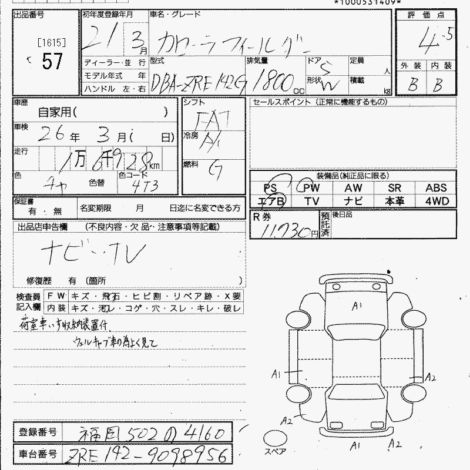 *1000531409*
出品番号
[1615]
57
初年度登録年月
21年3月
車名・グレード
カローラフィールダー
評価点
4.5
ディーラー・並行
モデル年式 年
ハンドル 左・右
型式
DBA-ZRE142G
排気量
1800cc
ドア 5
形状 W
定員 人
積載 kg
外装 内装
B B
車歴
自家用( )
シフト
FAT
車検
26年3月( 日)
冷房
A/C
走行
1万6千928km
燃料
G
色
色替
色コード
4T3
セールスポイント(正常に機能するもの)
装備品(純正品に限る)
PS PW AW SR ABS
エアB TV ナビ 本革 4WD
保証書
有・無
名変期限 月 日迄に名変できる方
R券
11,730円
預託済
後日品
出品店申告欄 (不良内容・欠品・注意事項等記載)
ナビ・TV
修復歴 有 (箇所 )
検査員記入欄
FW キズ・飛石・ヒビ割・リペア跡・X要
内装 キズ・汚レ・コゲ・穴・スレ・キレ・破レ
荷室車いす収納装置付
ウェルキャブ車の為よく見て
A1
A1 A2
A2
A1
スペア
登録番号 福岡502の4160
車台番号 ZRE142-9098956